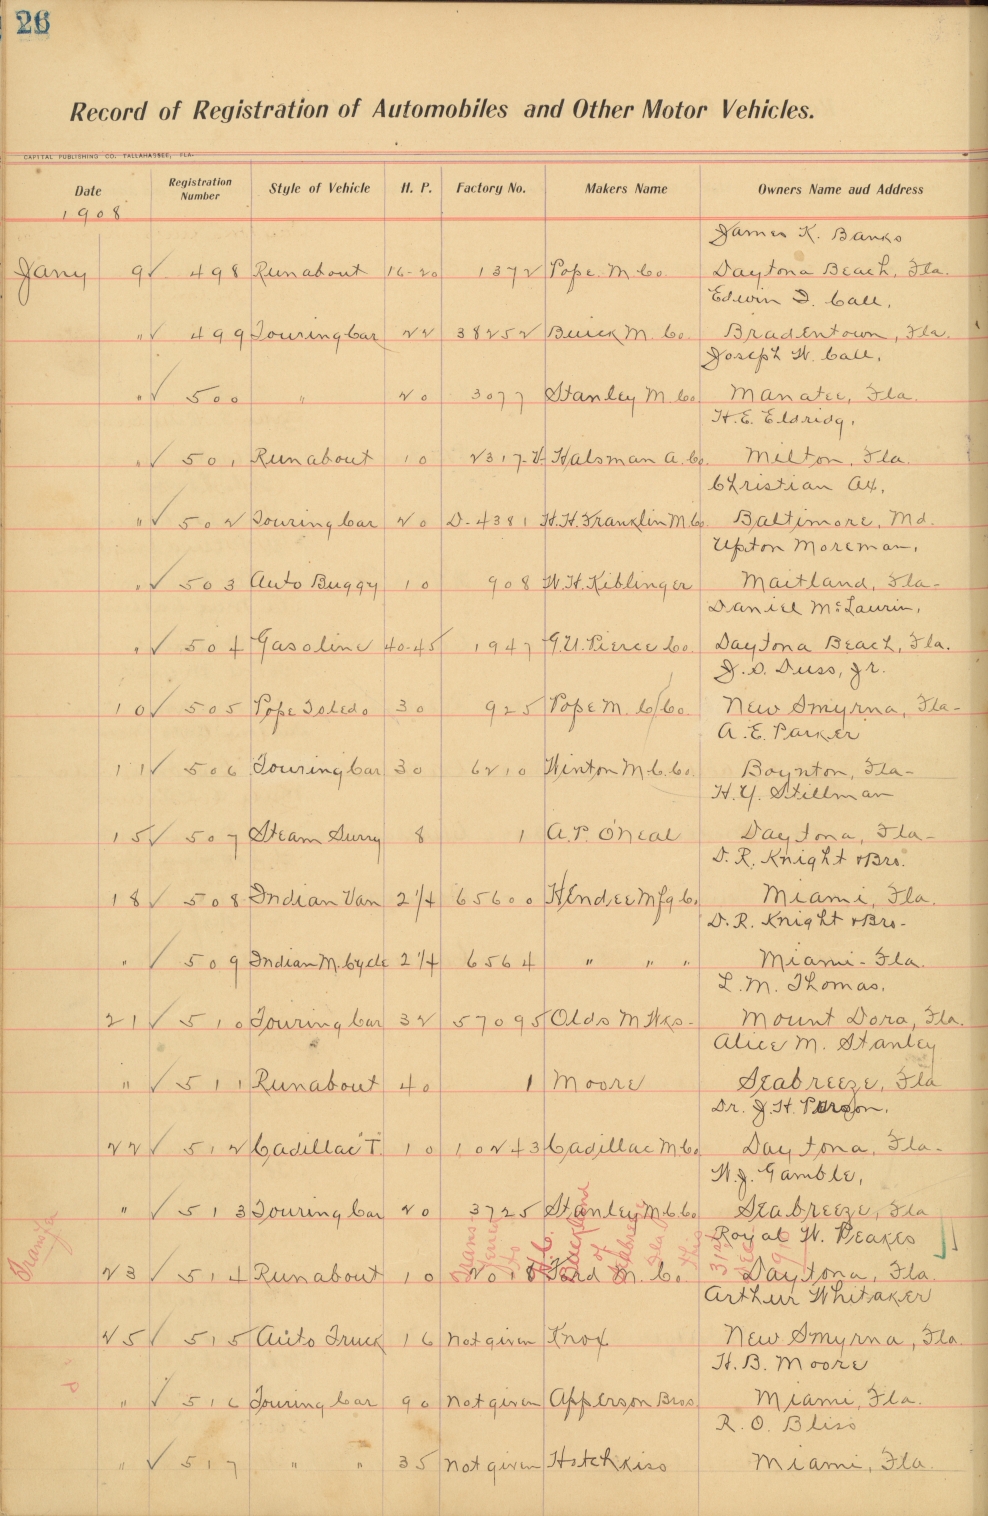 26
Record of Registration of Automobiles and Other Motor Vehicles.
CAPITAL PUBLISHING CO. TALLAHASSEE, FLA.
Date Registration Number Style of Vehicle H. P. Factory No. Makers Name Owners Name aud Address
1908
James K. Banks
Jany 9 ✓ 498 Runabout 16-20 1372 Pope M. Co. Daytona Beach, Fla.
Edwin D. Call,
" ✓ 499 Touring Car 22 38252 Buick M. Co. Bradentown, Fla.
Joseph W. Call,
" ✓ 500 " 20 3077 Stanley M. Co. Manatee, Fla.
H.E. Eldridg,
" ✓ 501 Runabout 10 2317-H Halsman A. Co. Milton, Fla.
Christian Ax,
" ✓ 502 Touring Car 20 D-4381 H.H. Franklin M. Co. Baltimore, Md.
Upton Moreman,
" ✓ 503 Auto Buggy 10 908 W.H. Kiblinger Maitland, Fla-
Daniel McLaurin,
" ✓ 504 Gasoline 40-45 1947 G.U. Pierce Co. Daytona Beach, Fla.
J.S. Duss, Jr.
10 ✓ 505 Pope Toledo 30 925 Pope M. C. Co. New Smyrna, Fla-
A.E. Parker
11 ✓ 506 Touring Car 30 6210 Winton M. C. Co. Boynton, Fla-
H.Y. Stillman
15 ✓ 507 Steam Surry 8 1 A.P. O'Neal Daytona, Fla-
D.R. Knight & Bro.
18 ✓ 508 Indian Van 2 1/4 65600 Hendee Mfg Co. Miami, Fla.
D.R. Knight & Bro-
" ✓ 509 Indian M. Cycle 2 1/4 6564 " " " Miami- Fla.
L.M. Thomas,
21 ✓ 510 Touring Car 32 57095 Olds M Wks- Mount Dora, Fla.
Alice M. Stanley
" ✓ 511 Runabout 40 1 Moore Seabreeze, Fla
Dr. J.H.
22 ✓ 512 Cadillac "T. 10 10243 Cadillac M. Co. Daytona, Fla-
W.J. Gamble,
" ✓ 513 Touring Car 20 3725 Stanley M. C. Co. Seabreeze, Fla
Royal W. Peakes
23 ✓ 514 Runabout 10 2018 Ford M. Co. Daytona, Fla.
Transfer
Trans- ferred to
of Seabreeze Fla this 31st
Arthur Whitaker
25 ✓ 515 Auto Truck 16 not given Knox New Smyrna, Fla.
H.B. Moore
" ✓ 516 Touring Car 90 not given Apperson Bros. Miami, Fla.
R.O. Bliss
" ✓ 517 " " 35 not given Hotchkiss Miami, Fla.